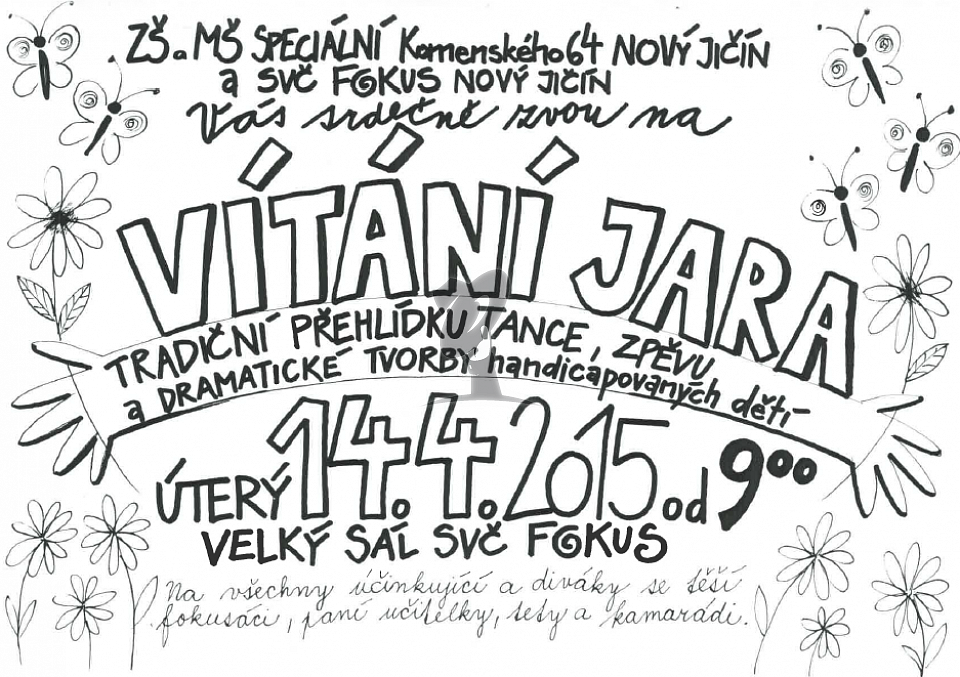 ZŠ a MŠ SPECIÁLNÍ Komenského 64 NOVÝ JIČÍN
a SVČ FOKUS NOVÝ JIČÍN
Vás srdečně zvou na
VÍTÁNÍ JARA
TRADIČNÍ PŘEHLÍDKU TANCE, ZPĚVU
a DRAMATICKÉ TVORBY handicapovaných dětí
ÚTERÝ 14.4.2015 od 9⁰⁰
VELKÝ SÁL SVČ FOKUS
Na všechny účinkující a diváky se těší
fokusáci, paní učitelky, tety a kamarádi.